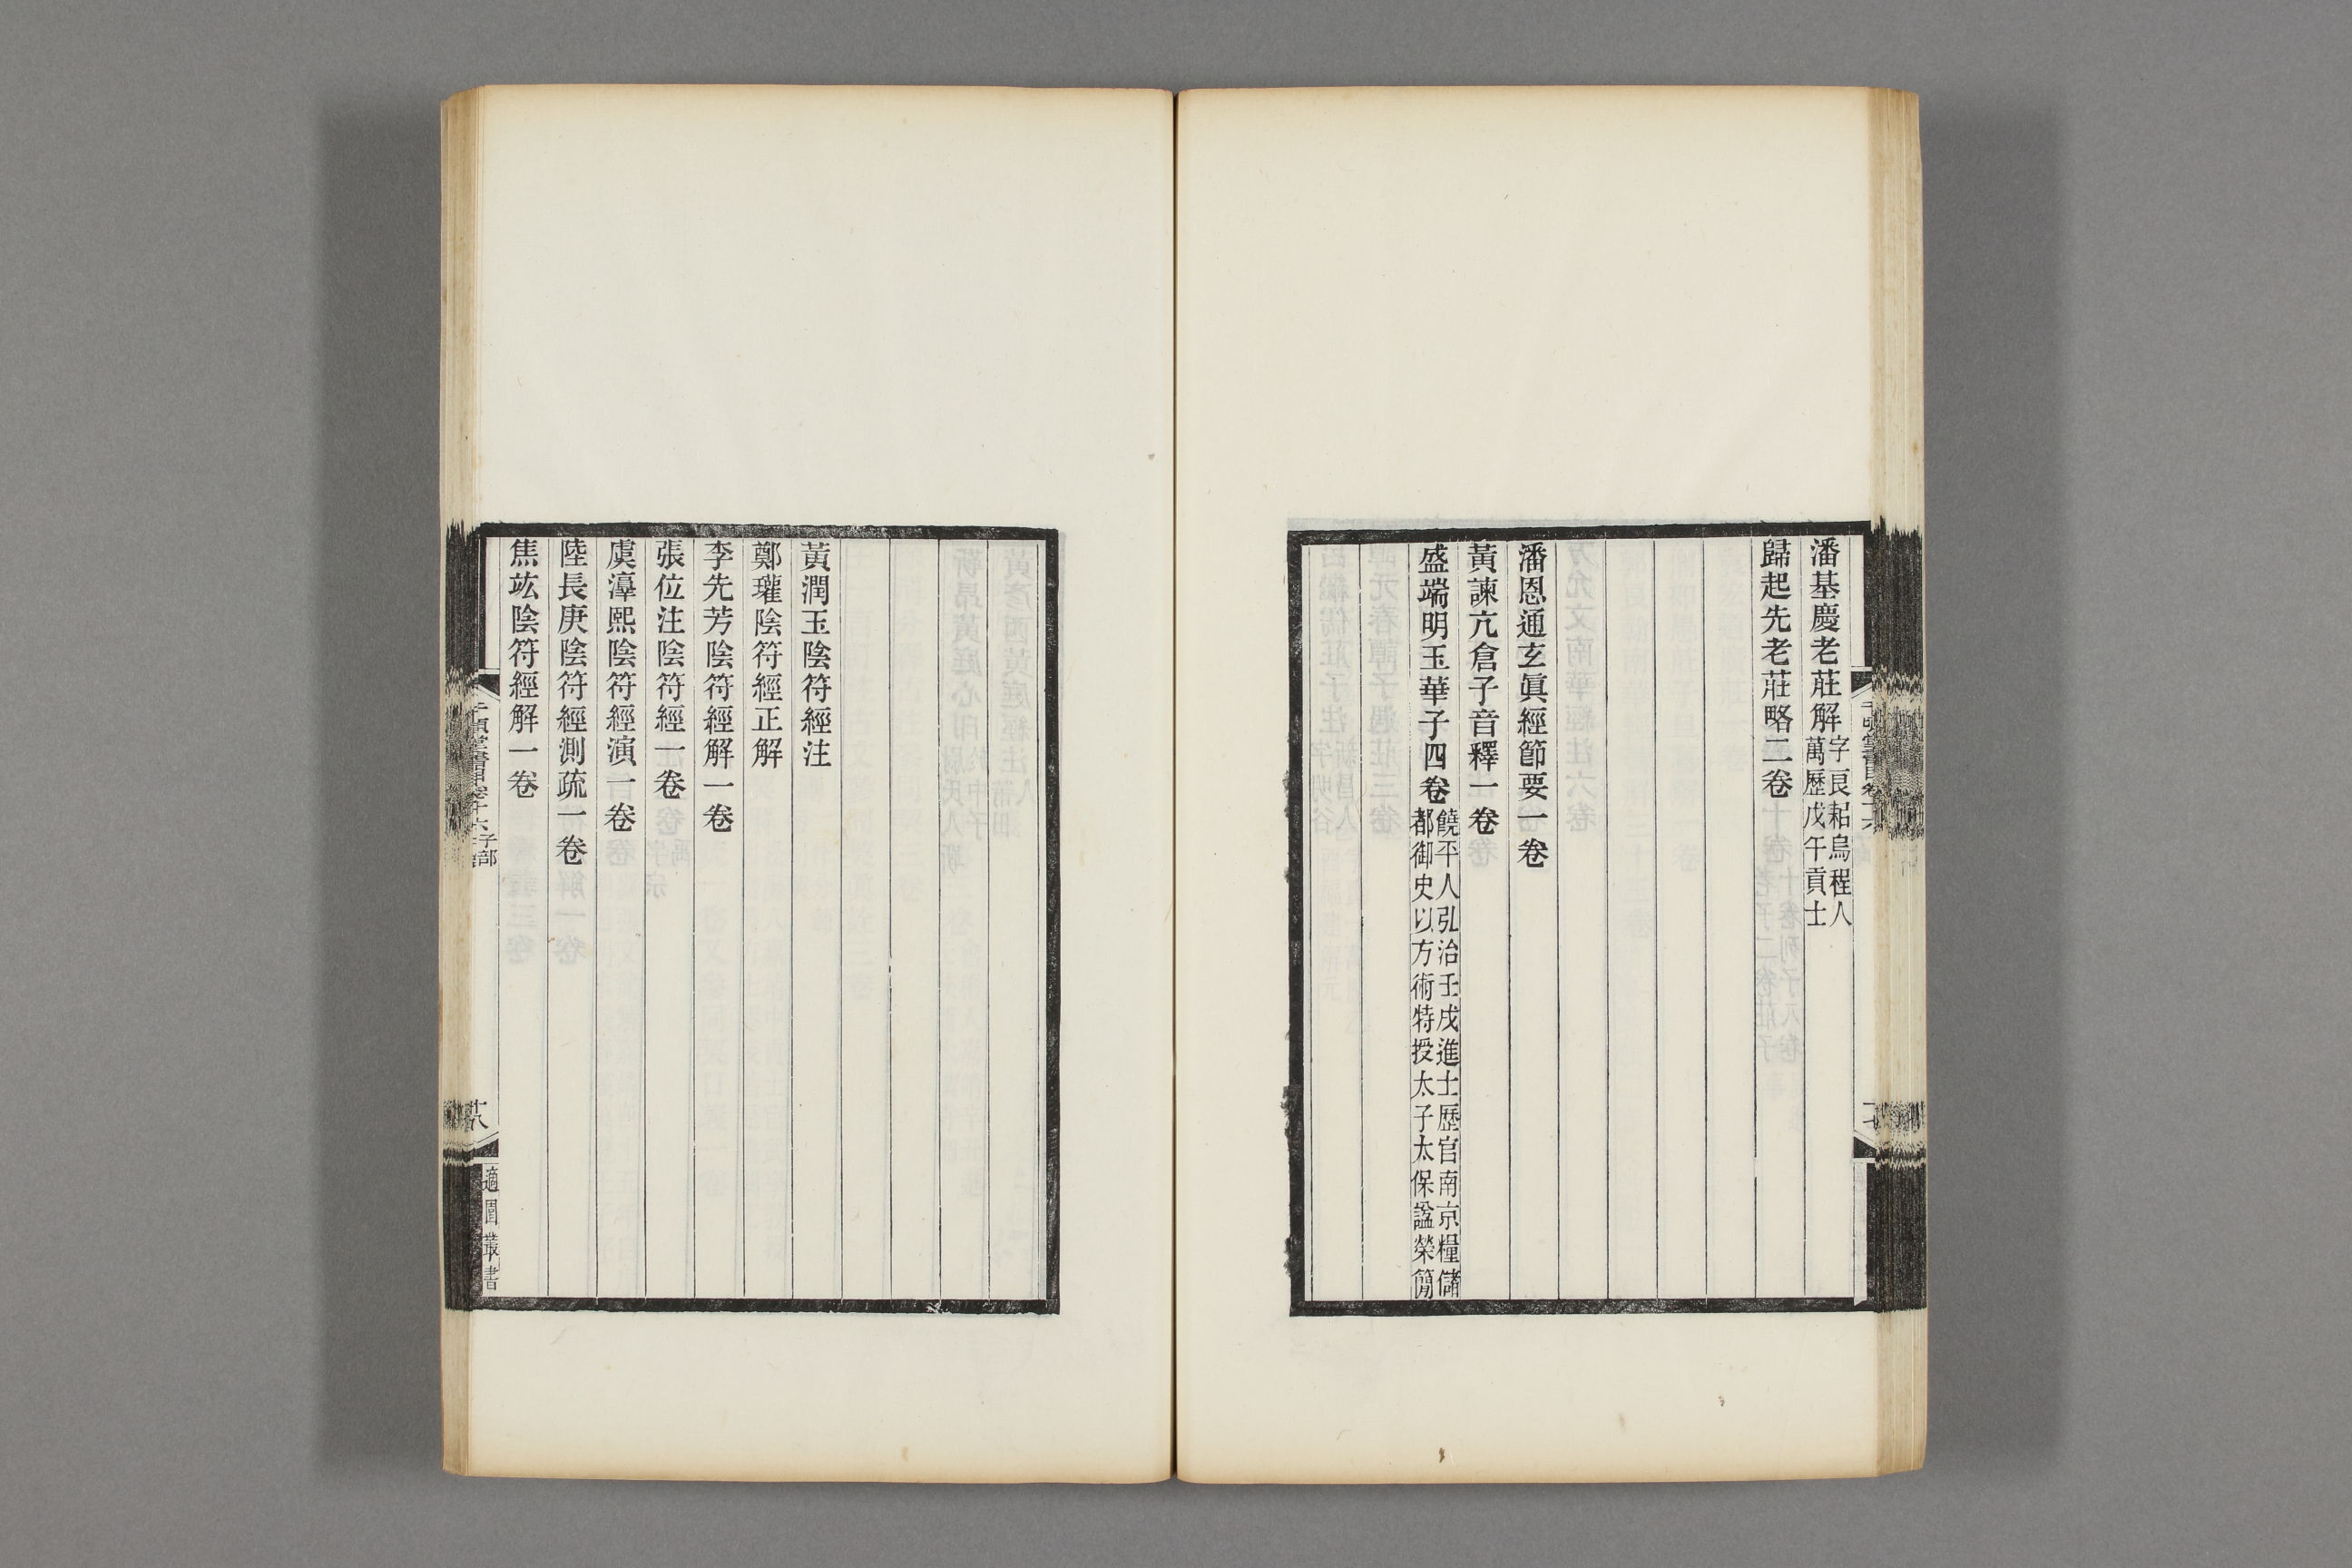 潘基慶老莊解字良耜烏程人萬歷戊午貢士
歸起先老莊略二卷
潘恩通玄眞經節要一卷
黃諫亢倉子音釋一卷
盛端明玉華子四卷饒平人弘治壬戌進士歷官南京糧儲都御史以方術特授太子太保諡榮簡
黃潤玉陰符經注
鄭瓘陰符經正解
李先芳陰符經解一卷
張位注陰符經一卷
虞淳熙陰符經演一卷
陸長庚陰符經測疏一卷
焦竑陰符經解一卷
千頃堂書目卷十六 子部
十八
適園叢書